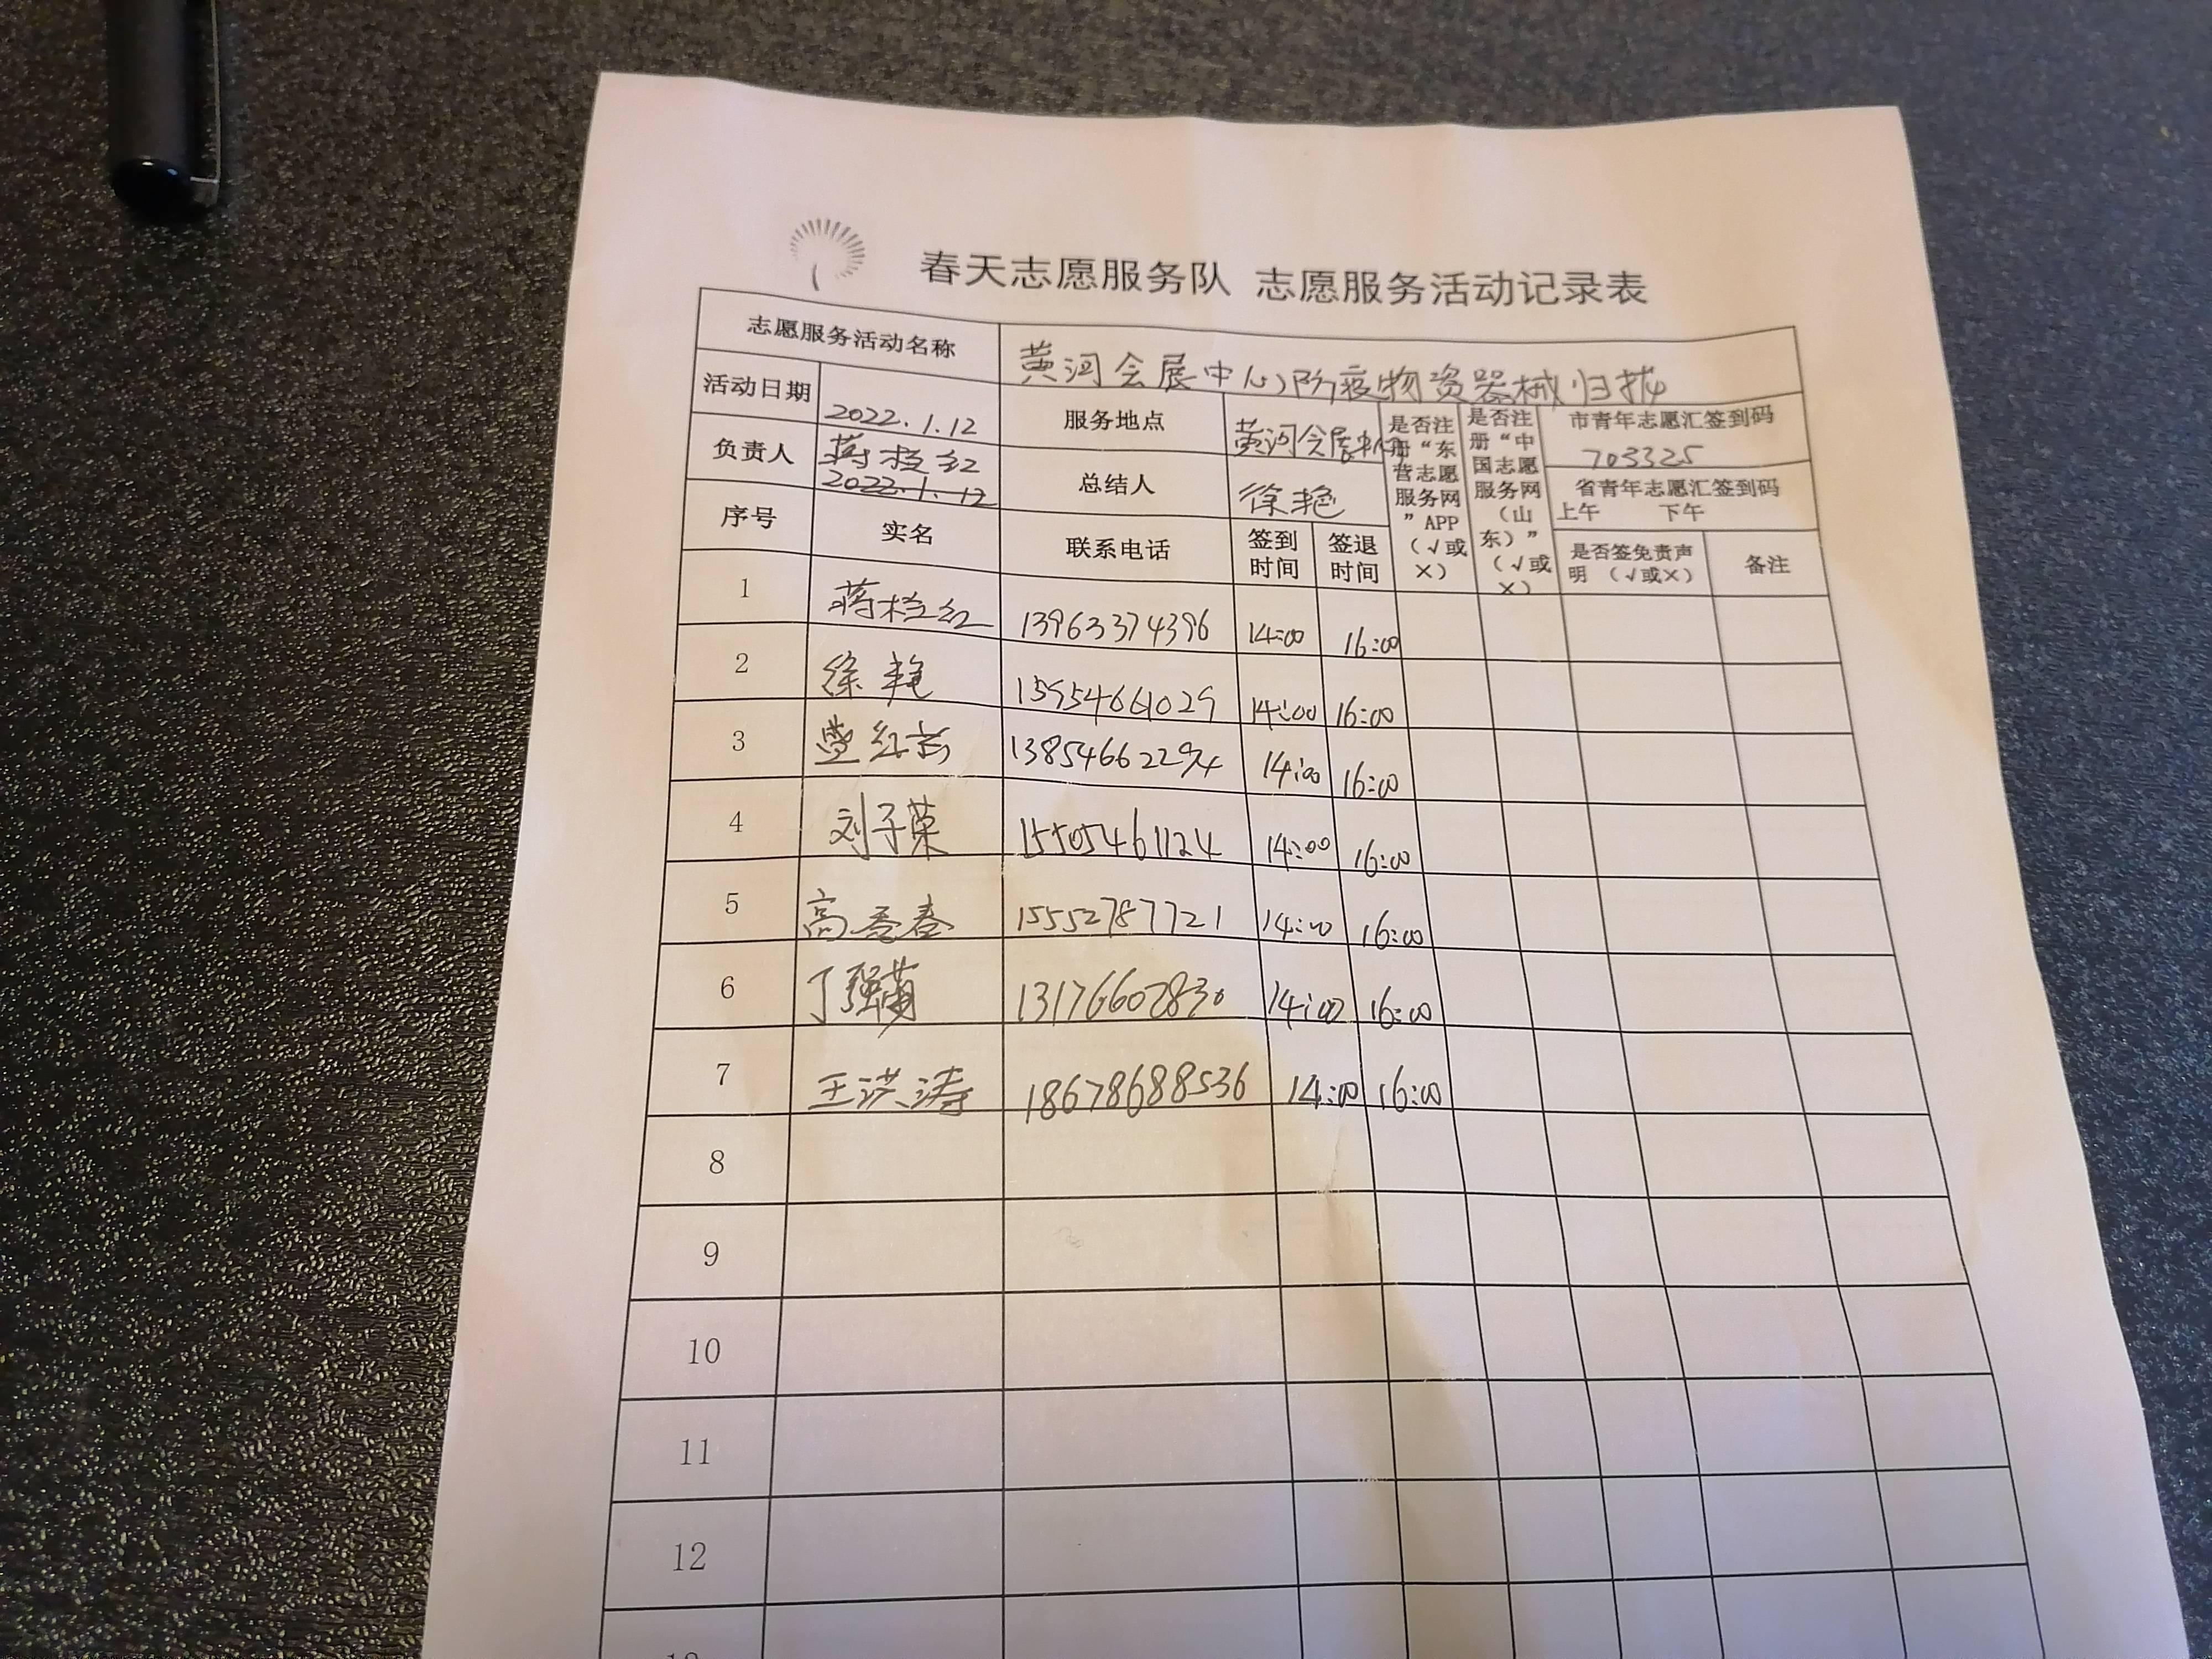 春天志愿服务队 志愿服务活动记录表
志愿服务活动名称 黄河会展中心防疫物资器械归拢
活动日期 2022.1.12 服务地点 黄河会展中心 是否注册“东营志愿服务网”APP（√或×） 是否注册“中国志愿服务网（山东）”（√或×） 市青年志愿汇签到码
703325
负责人 蒋 红 总结人 徐艳 省青年志愿汇签到码
2022.1.12 上午 下午
序号 实名 联系电话 签到时间 签退时间 是否签免责声明（√或×） 备注
1 蒋 红 13963374396 14:00 16:00
2 徐艳 15954661029 14:00 16:00
3 红 13854662294 14:00 16:00
4 刘子荣 15505461124 14:00 16:00
5 高 春 15552787721 14:00 16:00
6 丁强 13176607830 14:00 16:00
7 王洪涛 18678688536 14:00 16:00
8
9
10
11
12